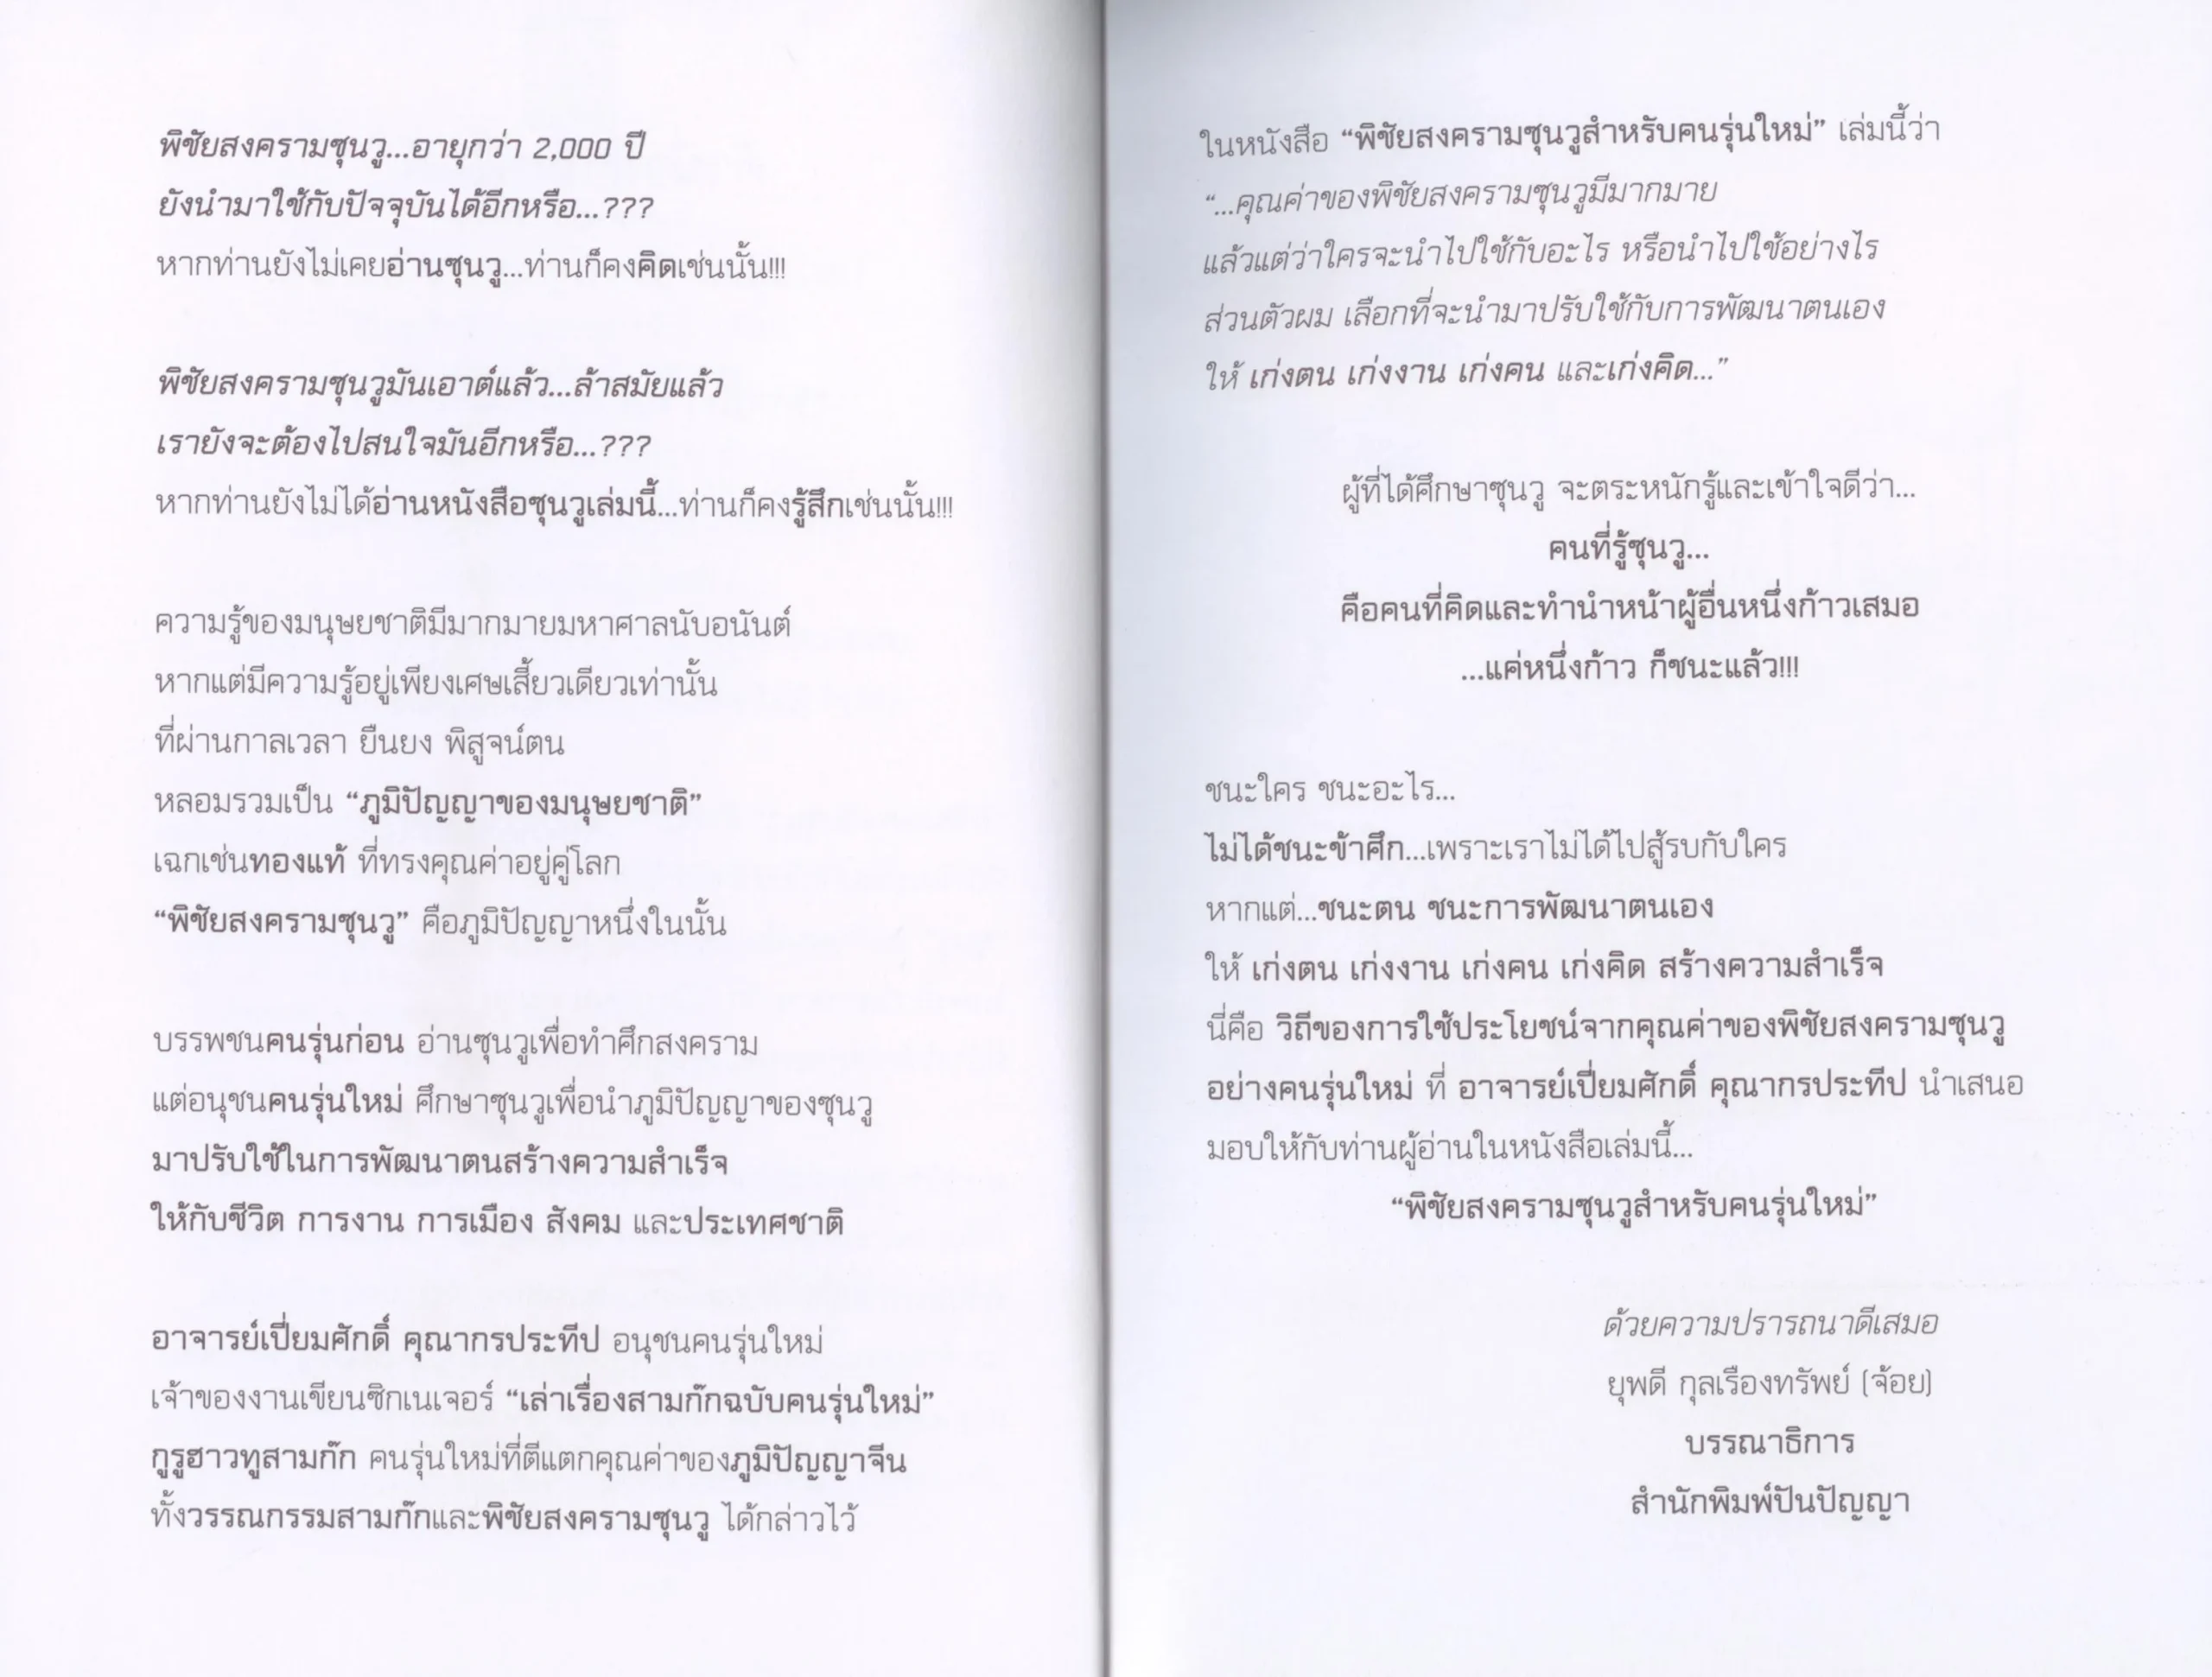 พิชัยสงครามซุนวู...อายุกว่า 2,000 ปี
ยังนำมาใช้กับปัจจุบันได้อีกหรือ...???
หากท่านยังไม่เคยอ่านซุนวู...ท่านก็คงคิดเช่นนั้น!!!
พิชัยสงครามซุนวูมันเอาต์แล้ว...ล้าสมัยแล้ว
เรายังจะต้องไปสนใจมันอีกหรือ...???
หากท่านยังไม่ได้อ่านหนังสือซุนวูเล่มนี้...ท่านก็คงรู้สึกเช่นนั้น!!!
ความรู้ของมนุษยชาติมีมากมายมหาศาลนับอนันต์
หากแต่มีความรู้อยู่เพียงเศษเสี้ยวเดียวเท่านั้น
ที่ผ่านกาลเวลา ยืนยง พิสูจน์ตน
หลอมรวมเป็น “ภูมิปัญญาของมนุษยชาติ”
เฉกเช่นทองแท้ ที่ทรงคุณค่าอยู่คู่โลก
“พิชัยสงครามซุนวู” คือภูมิปัญญาหนึ่งในนั้น
บรรพชนคนรุ่นก่อน อ่านซุนวูเพื่อทำศึกสงคราม
แต่อนุชนคนรุ่นใหม่ ศึกษาซุนวูเพื่อนำภูมิปัญญาของซุนวู
มาปรับใช้ในการพัฒนาตนสร้างความสำเร็จ
ให้กับชีวิต การงาน การเมือง สังคม และประเทศชาติ
อาจารย์เปี่ยมศักดิ์ คุณากรประทีป อนุชนคนรุ่นใหม่
เจ้าของงานเขียนซิกเนเจอร์ “เล่าเรื่องสามก๊กฉบับคนรุ่นใหม่”
กูรูฮาวทูสามก๊ก คนรุ่นใหม่ที่ตีแตกคุณค่าของภูมิปัญญาจีน
ทั้งวรรณกรรมสามก๊กและพิชัยสงครามซุนวู ได้กล่าวไว้
ในหนังสือ “พิชัยสงครามซุนวูสำหรับคนรุ่นใหม่” เล่มนี้ว่า
“...คุณค่าของพิชัยสงครามซุนวูมีมากมาย
แล้วแต่ว่าใครจะนำไปใช้กับอะไร หรือนำไปใช้อย่างไร
ส่วนตัวผม เลือกที่จะนำมาปรับใช้กับการพัฒนาตนเอง
ให้ เก่งตน เก่งงาน เก่งคน และเก่งคิด...”
ผู้ที่ได้ศึกษาซุนวู จะตระหนักรู้และเข้าใจดีว่า...
คนที่รู้ซุนวู...
คือคนที่คิดและทำนำหน้าผู้อื่นหนึ่งก้าวเสมอ
...แค่หนึ่งก้าว ก็ชนะแล้ว!!!
ชนะใคร ชนะอะไร...
ไม่ได้ชนะข้าศึก...เพราะเราไม่ได้ไปสู้รบกับใคร
หากแต่...ชนะตน ชนะการพัฒนาตนเอง
ให้ เก่งตน เก่งงาน เก่งคน เก่งคิด สร้างความสำเร็จ
นี่คือ วิถีของการใช้ประโยชน์จากคุณค่าของพิชัยสงครามซุนวู
อย่างคนรุ่นใหม่ ที่ อาจารย์เปี่ยมศักดิ์ คุณากรประทีป นำเสนอ
มอบให้กับท่านผู้อ่านในหนังสือเล่มนี้...
“พิชัยสงครามซุนวูสำหรับคนรุ่นใหม่”
ด้วยความปรารถนาดีเสมอ
ยุพดี กุลเรืองทรัพย์ (จ้อย)
บรรณาธิการ
สำนักพิมพ์ปันปัญญา